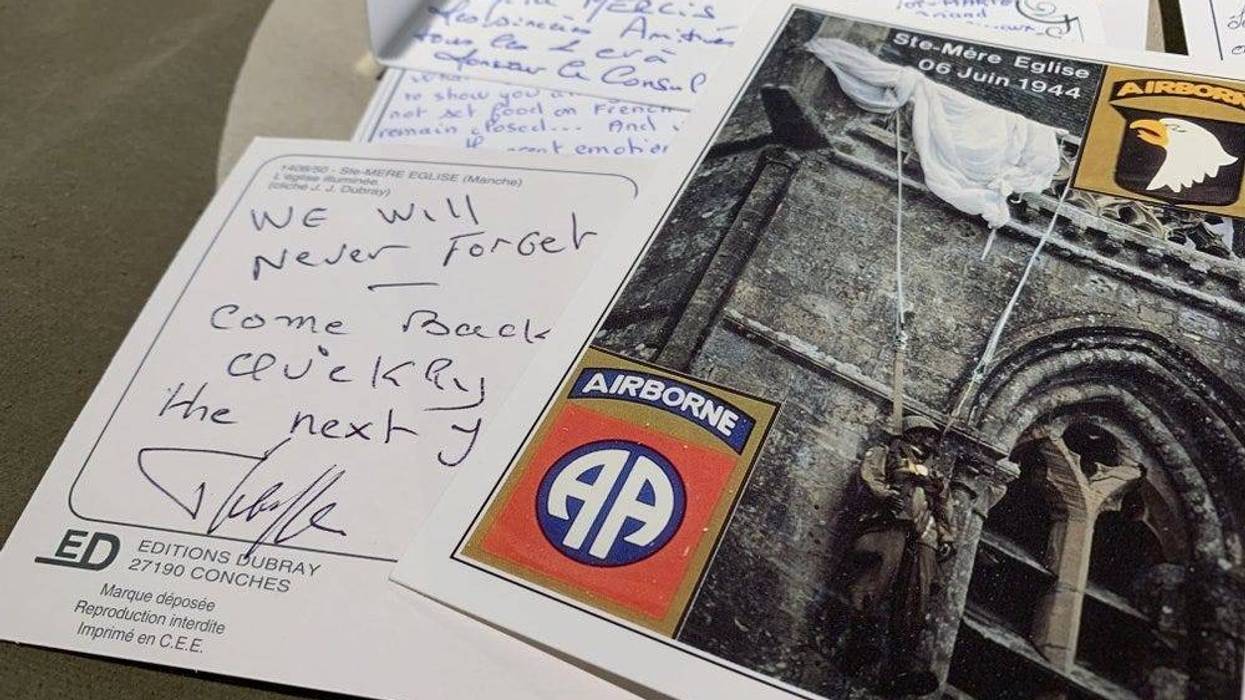 MERCIS
Amitiés
Monsieur le Consul
to show you
not set food on French
remain closed... And
emotion
1408/50 - Ste-MERE EGLISE (Manche)
L'église illuminée
(cliché J. J. Dubray)
WE Will
Never Forget
Come Back
Quickly
the next y
ED
EDITIONS DUBRAY
27190 CONCHES
Marque déposée
Reproduction interdite
Imprimé en C.E.E.
Ste-Mère Eglise
06 Juin 1944
AIRBORN
AIRBORNE
AA